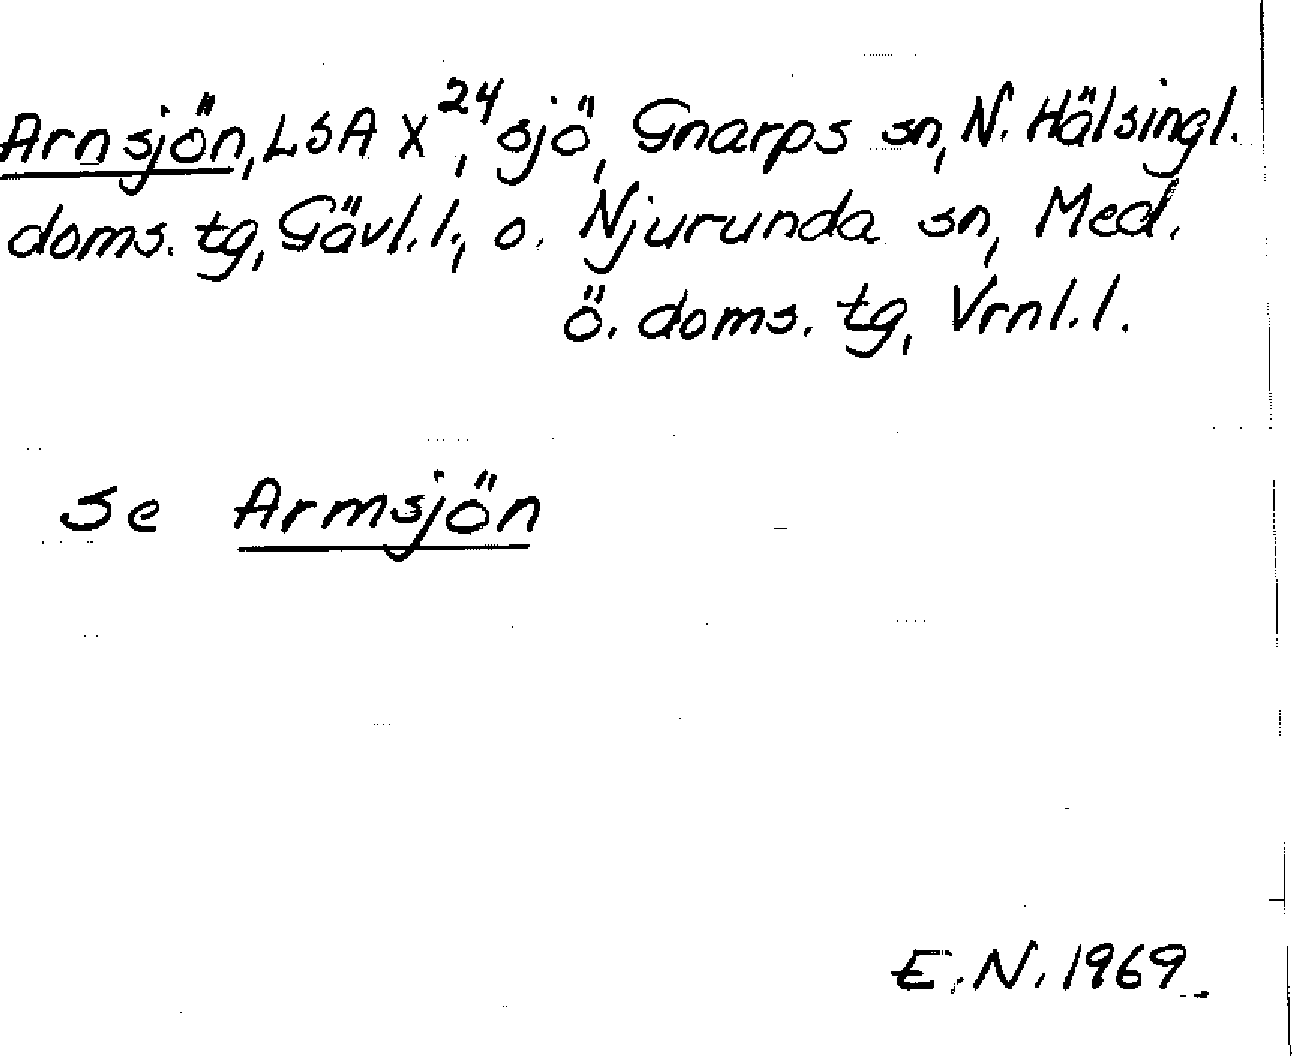 Arnsjön, LSA X²⁴, sjö, Gnarps sn, N. Hälsingl.
doms. tg, Gävl. l., o. Njurunda sn, Med.
ö. doms. tg, Vrnl. l.
se Armsjön
E. N. 1969